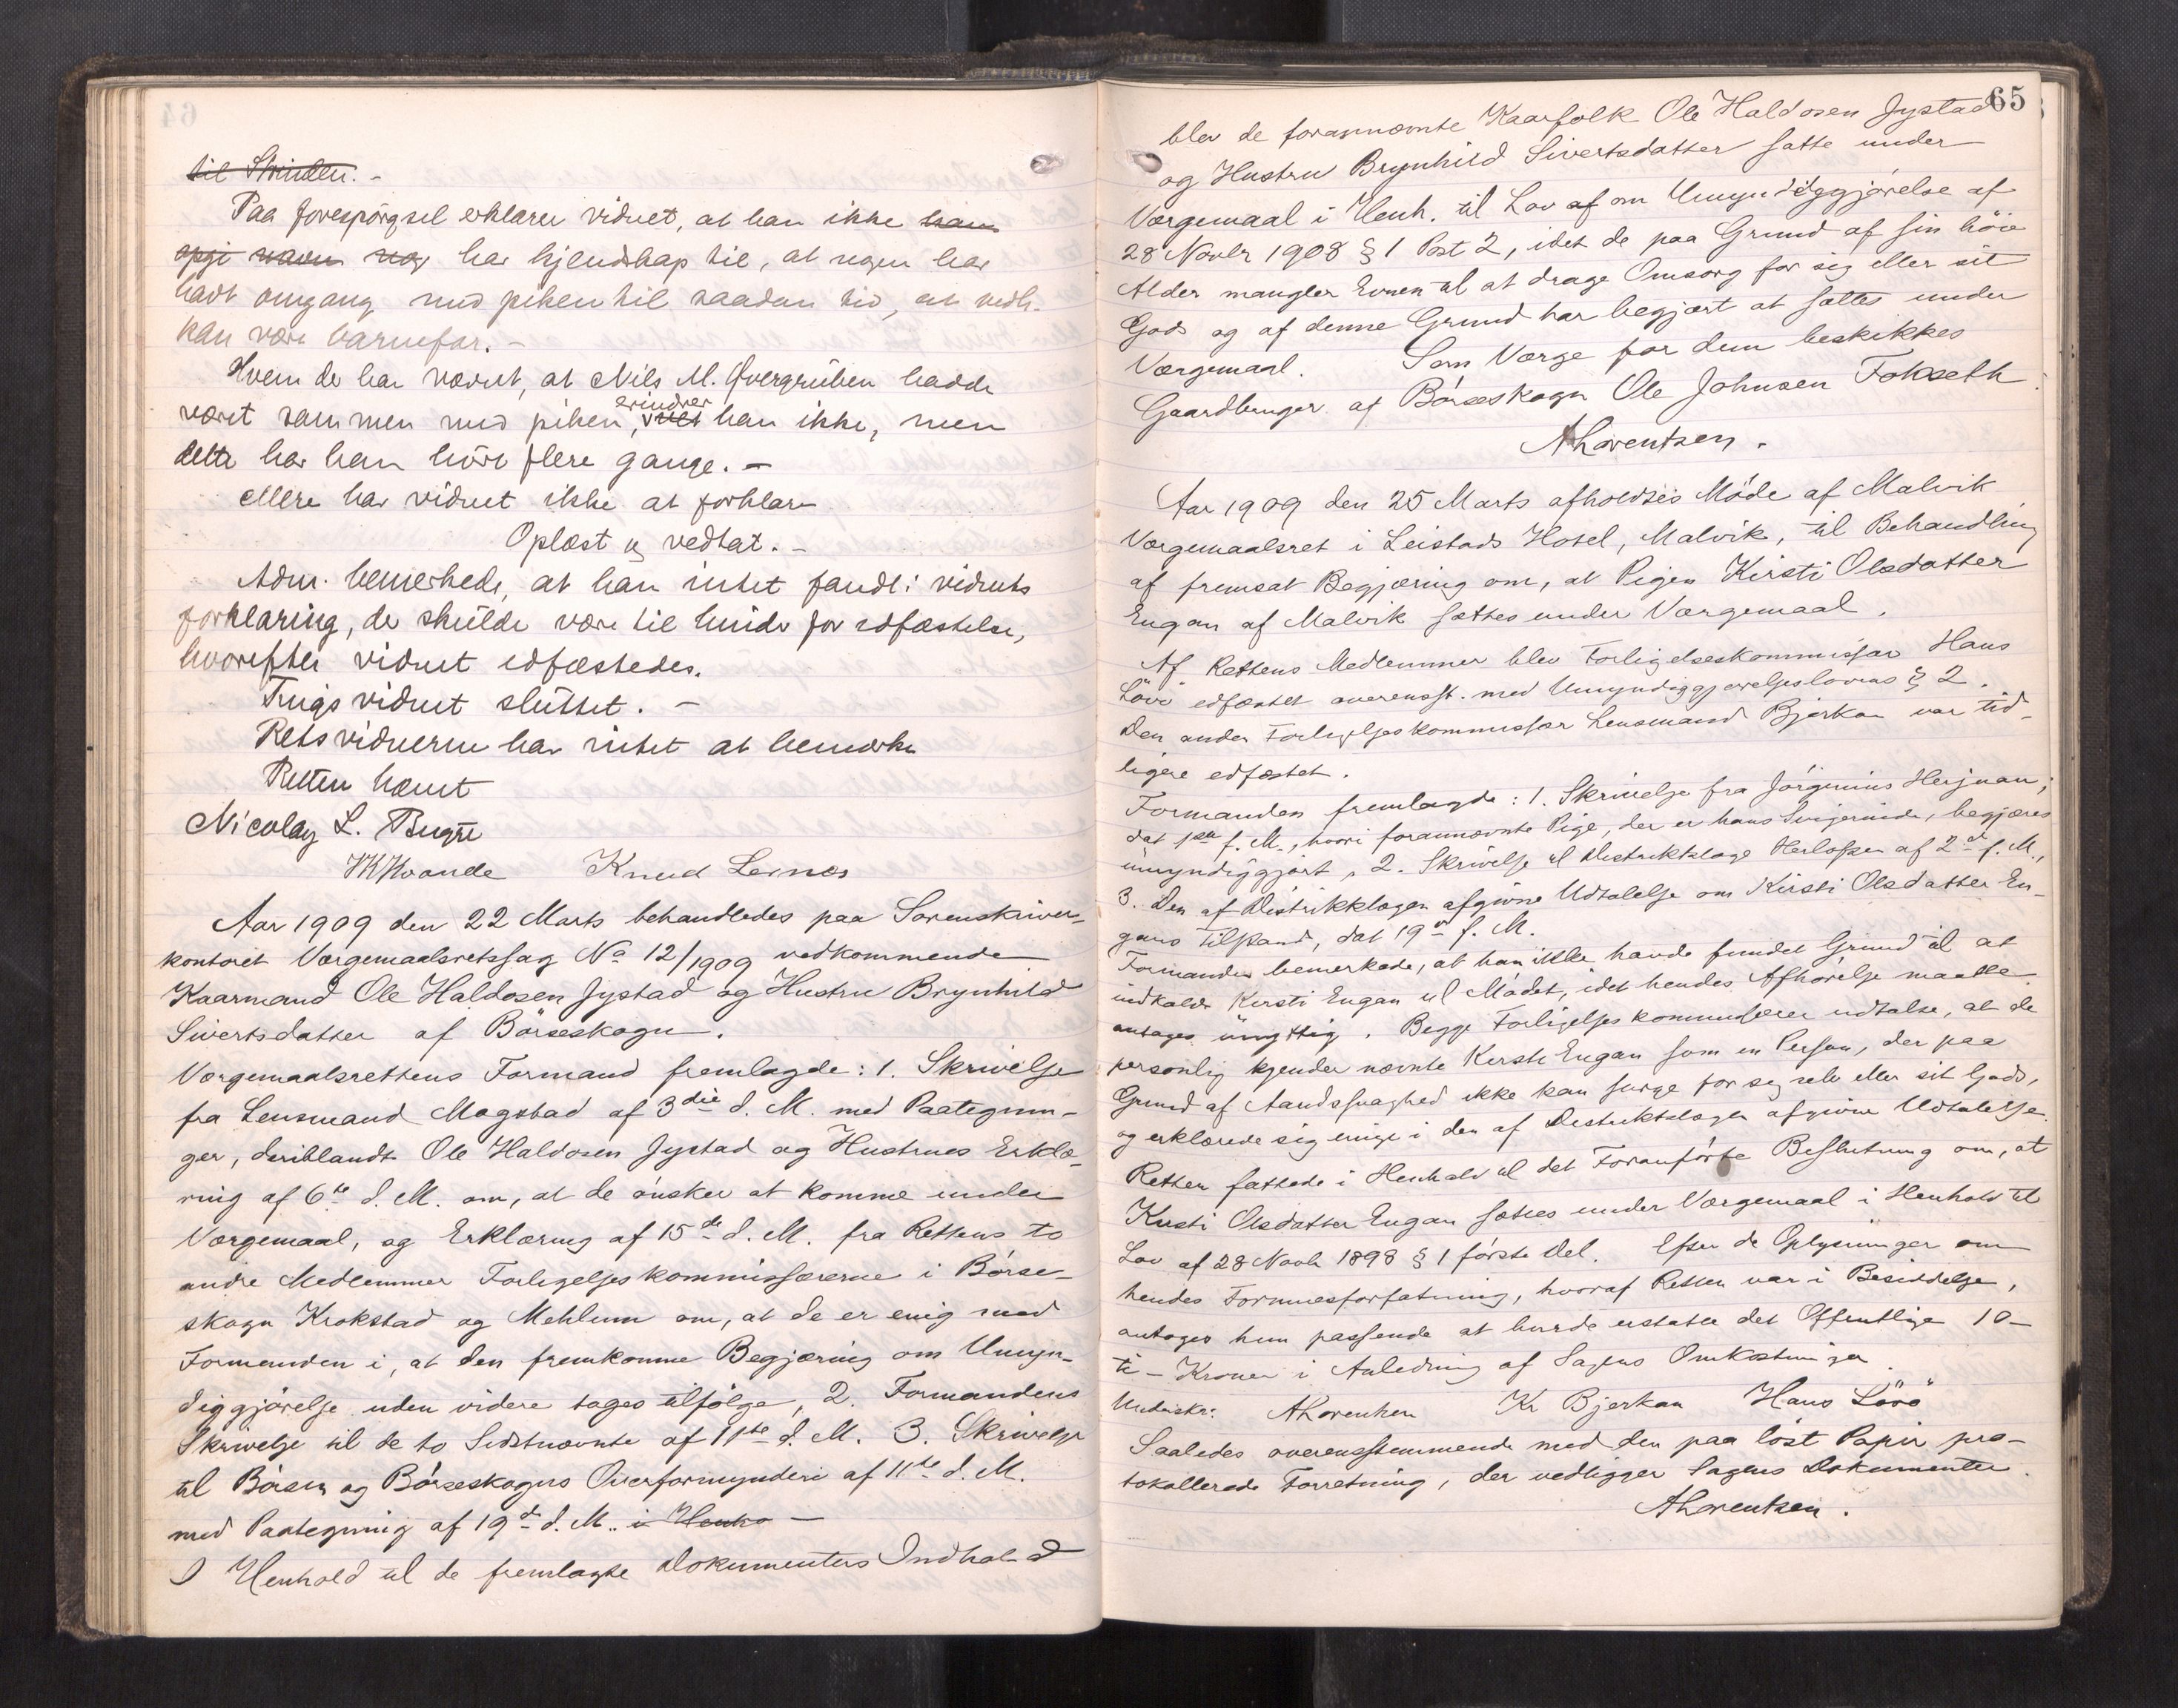 til Strinden. -
Paa forespørgsel erklærer vidnet, at han ikke han
opgi navn nog har kjendskap til, at nogen har
hadt omgang med piken til saadan tid, at vedk.
kan være barnefar. -
Hvem de har nævnt, at Nils M. Øvergrüben hadde
været sammen med piken, erindrer vilet han ikke, men
dette har han hørt flere gange. -
Mere har vidnet ikke at forklare
Oplæst og vedtat. -
Adm. bemerkede, at han intet fandt i vidnets
forklaring, der skulde være til hinder for edfæstelse,
hvorefter vidnet edfæstedes.
Tingsvidnet sluttet. -
Retsvidnerne har intet at bemerke
Retten hævet
Nicolay L. Bugge
Knud Leinæs
Aar 1909 den 22 Marts behandledes paa Sorenskriver-
kontoret Værgemaalsretssag No 12/1909 vedkommende
Kaarmand Ole Haldosen Jystad og Hustru Brynhild
Sivertsdatter af Börseskogn.
Værgemaalsrettens Formand fremlagde: 1. Skrivelse
fra Lensmand Magstad af 3die d. M. med Paategnin-
ger, deriblandt Ole Haldosen Jystad og Hustrues Erklæ-
ring af 6te d. M. om, at de ønsker at komme under
Værgemaal, og Erklæring af 15de d. M. fra Rettens to
andre Medlemmer Forligelseskommissærerne i Börse-
skogn Krokstad og Mehlum om, at de er enig med
Formanden i, at den fremkomne Begjæring om Umyn-
diggjørelse uden videre tages tilfølge, 2. Formandens
Skrivelse til de to Sidstnævnte af 11te d. M. 3. Skrivelse
til Börsen og Börseskogns Overformynderi af 11te d. M.
med Paategning af 19de d. M.. i Henho -
I Henhold til de fremlagte Dokumenters Indhold
65
blev de forannævnte Kaarfolk Ole Haldosen Jystad
og Hustru Brynhild Sivertsdatter satte under
Værgemaal i Henh. til Lov af om Umyndiggjørelse af
28 Novbr 1908 § 1 Post 2, idet de paa Grund af sin höie
Alder mangler Evnen til at drage Omsorg for sig eller sit
Gods og af denne Grund har begjært at sættes under
Værgemaal. Som Værge for dem beskikkes
Gaardbruger af Börseskogn Ole Johnsen Fokseth.
A Lorentzen.
Aar 1909 den 25 Marts afholdtes Möde af Malvik
Værgemaalsret i Leistads Hotel, Malvik, til Behandling
af fremsat Begjæring om, at Pigen Kirsti Olsdatter
Engan af Malvik sættes under Værgemaal.
Af Rettens Medlemmer blev Forligelseskommissær Hans
Lövö edfæstet overensst. med Umyndiggjørelseslovens § 2.
Den anden Forligelseskommissær Lensmand Bjerkan var tid-
ligere edfæstet.
Formanden fremlagde: 1. Skrivelse fra Jörginius Herjuan,
dat 1ste f. M., hvori forannævnte Pige, der er hans Svigerinde, begjæres
umyndiggjort, 2. Skrivelse til Distriktslæge Herlofsen af 2den f. M.,
3. Den af Distriktslægen afgivne Udtalelse om Kirsti Olsdatter En-
gans Tilstand, dat 19de f. M.
Formanden bemerkede, at han ikke havde fundet Grund til at
indkalde Kirsti Engan til Mödet, idet hendes Afhörelse maatte
antages unyttig. Begge Forligelseskommissærer udtalte, at de
personlig kjender nævnte Kirsti Engan som en Person, der paa
Grund af Aandssvaghed ikke kan sørge for sig selv eller sit Gods,
og erklærede sig enige i den af Distriktslægen afgivne Udtalelse.
Retten fattede i Henhold til det Foranförte Beslutning om, at
Kirsti Olsdatter Engan sættes under Værgemaal i Henhold til
Lov af 28 Novb 1898 § 1 förste Del. Efter de Oplysninger om
hendes Formuesforfatning, hvoraf Retten var i Besiddelse,
antoges hun passende at burde erstatte det Offentlige 10-
ti - Kroner i Anledning af Sagens Omkostninger.
Underskr: A Lorentzen Kr Bjerkan Hans Lövö
Saaledes overensstemmende med den paa löst Papir pro-
tokollerede Forretning, der vedligger Sagens Dokumenter.
A Lorentzen.